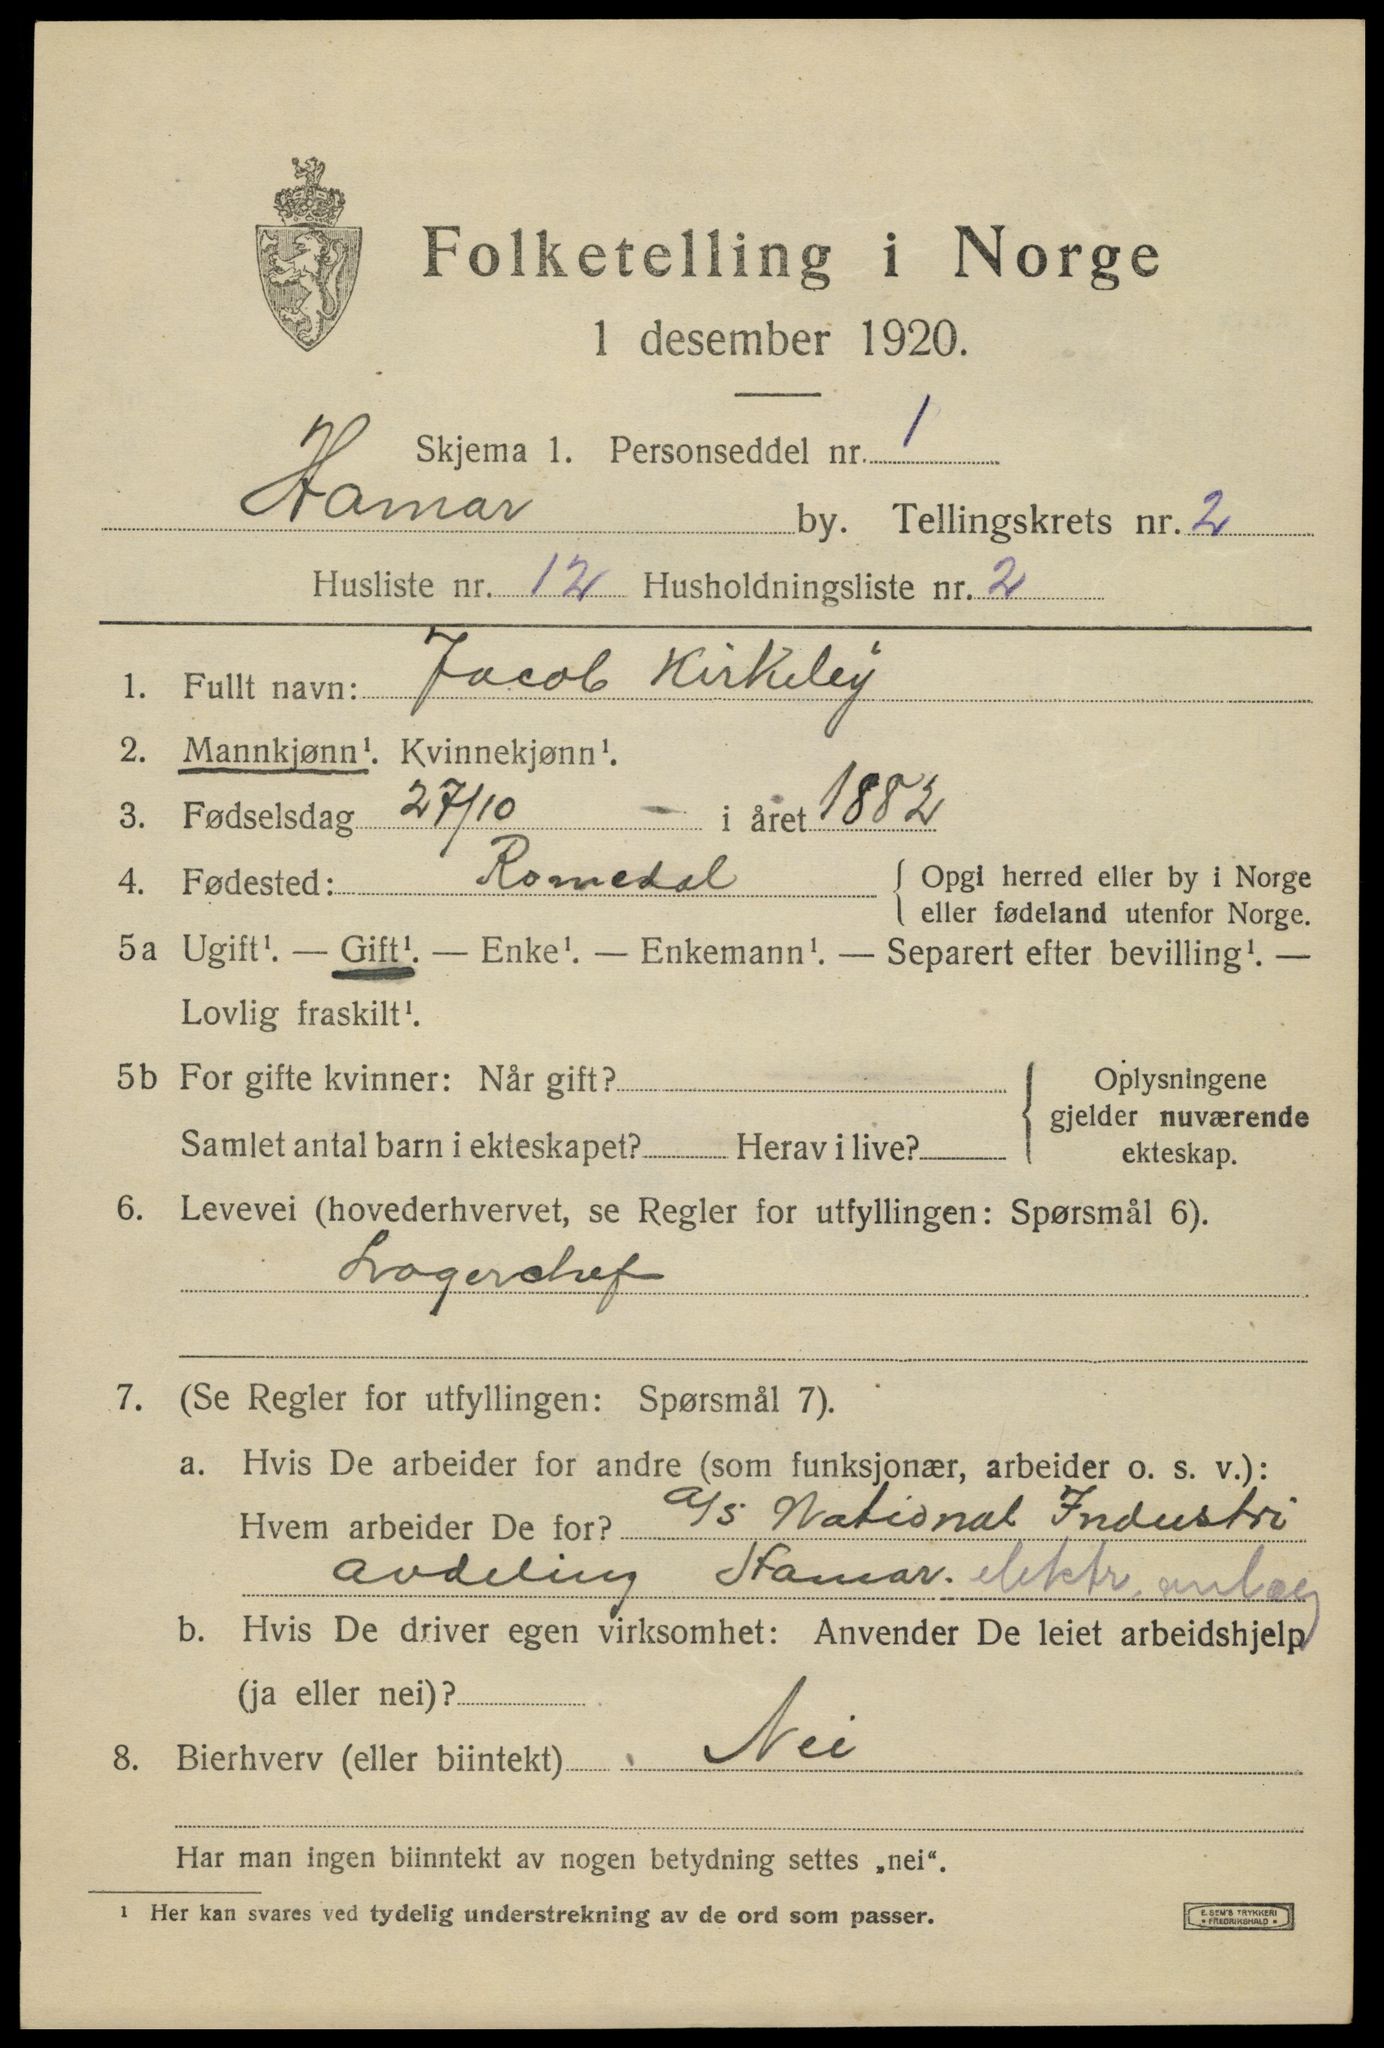 Folketelling i Norge
1 desember 1920.
Skjema 1. Personseddel nr. 1
Hamar by. Tellingskrets nr. 2
Husliste nr. 12 Husholdningsliste nr. 2
1. Fullt navn: Jacob Kirkeby
2. Mannkjønn¹. Kvinnekjønn¹.
3. Fødselsdag 27/10 i året 1882
4. Fødested: Romedal { Opgi herred eller by i Norge
eller fødeland utenfor Norge.
5a Ugift¹. — Gift¹. — Enke¹. — Enkemann¹. — Separert efter bevilling¹. —
Lovlig fraskilt¹.
5b For gifte kvinner: Når gift? { Oplysningene
gjelder nuværende
Samlet antal barn i ekteskapet? Herav i live? ekteskap.
6. Levevei (hovederhvervet, se Regler for utfyllingen: Spørsmål 6).
Lagerchef
7. (Se Regler for utfyllingen: Spørsmål 7).
a. Hvis De arbeider for andre (som funksjonær, arbeider o. s. v.):
Hvem arbeider De for? a/s National Industri
avdeling Hamar. elektr. anlæg
b. Hvis De driver egen virksomhet: Anvender De leiet arbeidshjelp
(ja eller nei)?
8. Bierhverv (eller biintekt) Nei
Har man ingen biinntekt av nogen betydning settes „nei“.
¹ Her kan svares ved tydelig understrekning av de ord som passer.
E. SEM'S TRYKKERI
* FREDRIKSHALD *